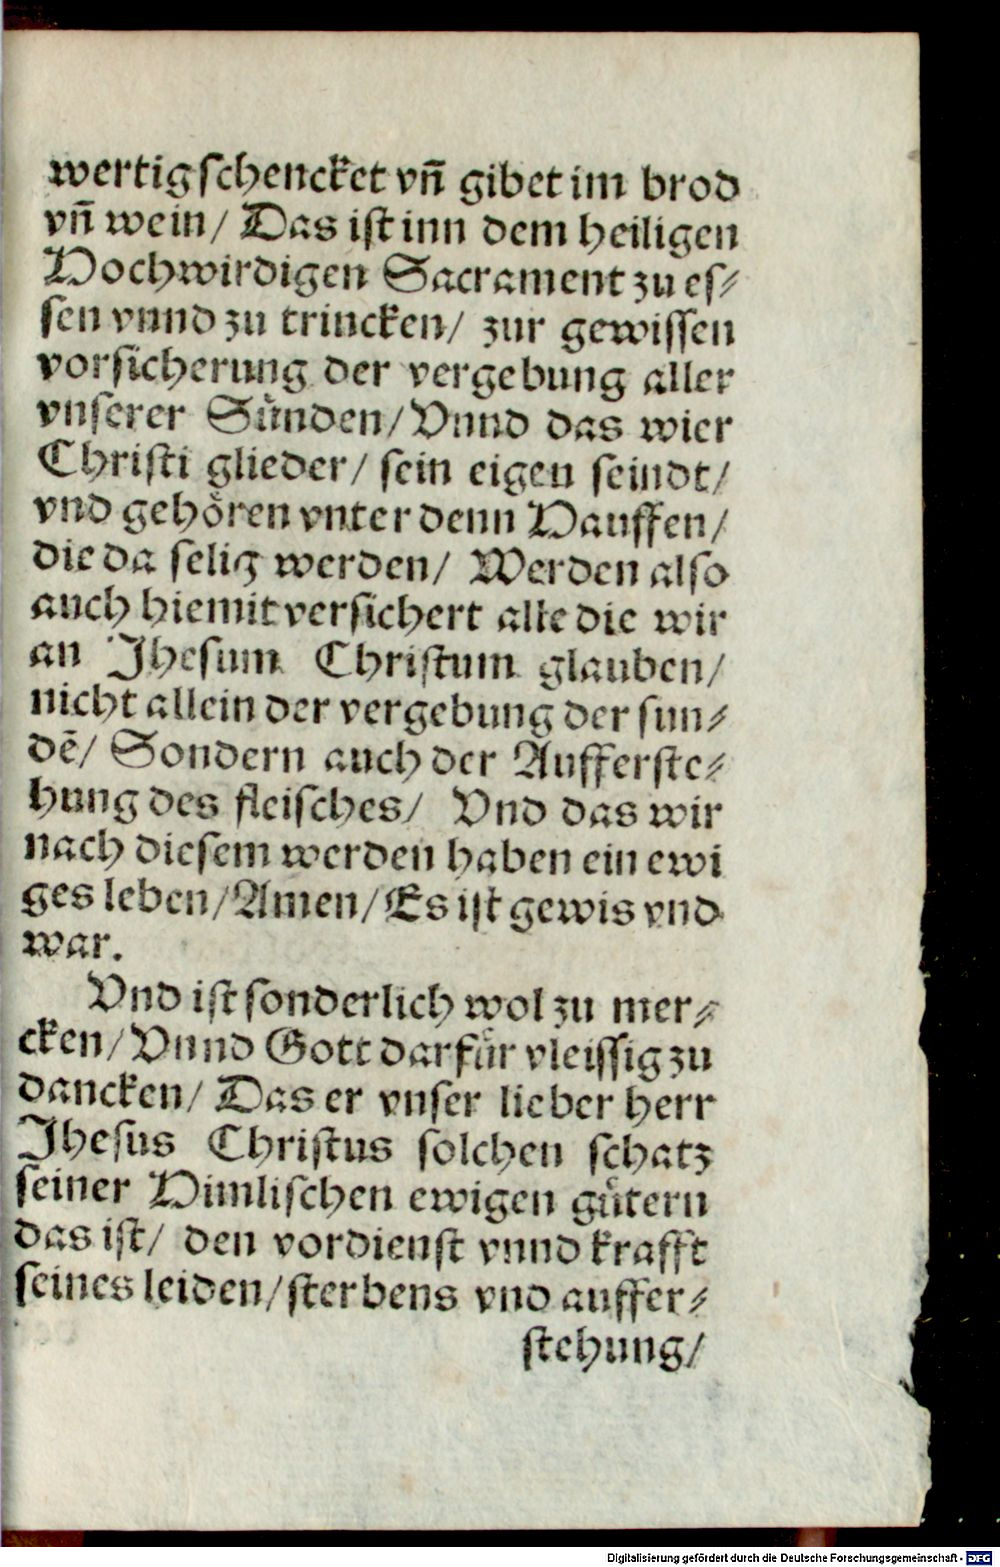 wertig schencket vñ gibet im brod
vñ wein/ Das ist inn dem heiligen
Hochwirdigen Sacrament zu es⸗
sen vnnd zu trincken/ zur gewissen
vorsicherung der vergebung aller
vnserer Sünden/ Vnnd das wier
Christi glieder/ sein eigen seindt/
vnd gehören vnter denn Hauffen/
die da selig werden/ Werden also
auch hiemit versichert alle die wir
an Jhesum Christum glauben/
nicht allein der vergebung der sun⸗
dē/ Sondern auch der Aufferste⸗
hung des fleisches/ Vnd das wir
nach diesem werden haben ein ewi
ges leben/ Amen/ Es ist gewis vnd
war.
Vnd ist sonderlich wol zu mer⸗
cken/ Vnnd Gott darfür vleissig zu
dancken/ Das er vnser lieber herr
Jhesus Christus solchen schatz
seiner Himlischen ewigen gütern
das ist/ den vordienst vnnd krafft
seines leiden/ sterbens vnd auffer⸗
stehung/
Digitalisierung gefördert durch die Deutsche Forschungsgemeinschaft - DFG